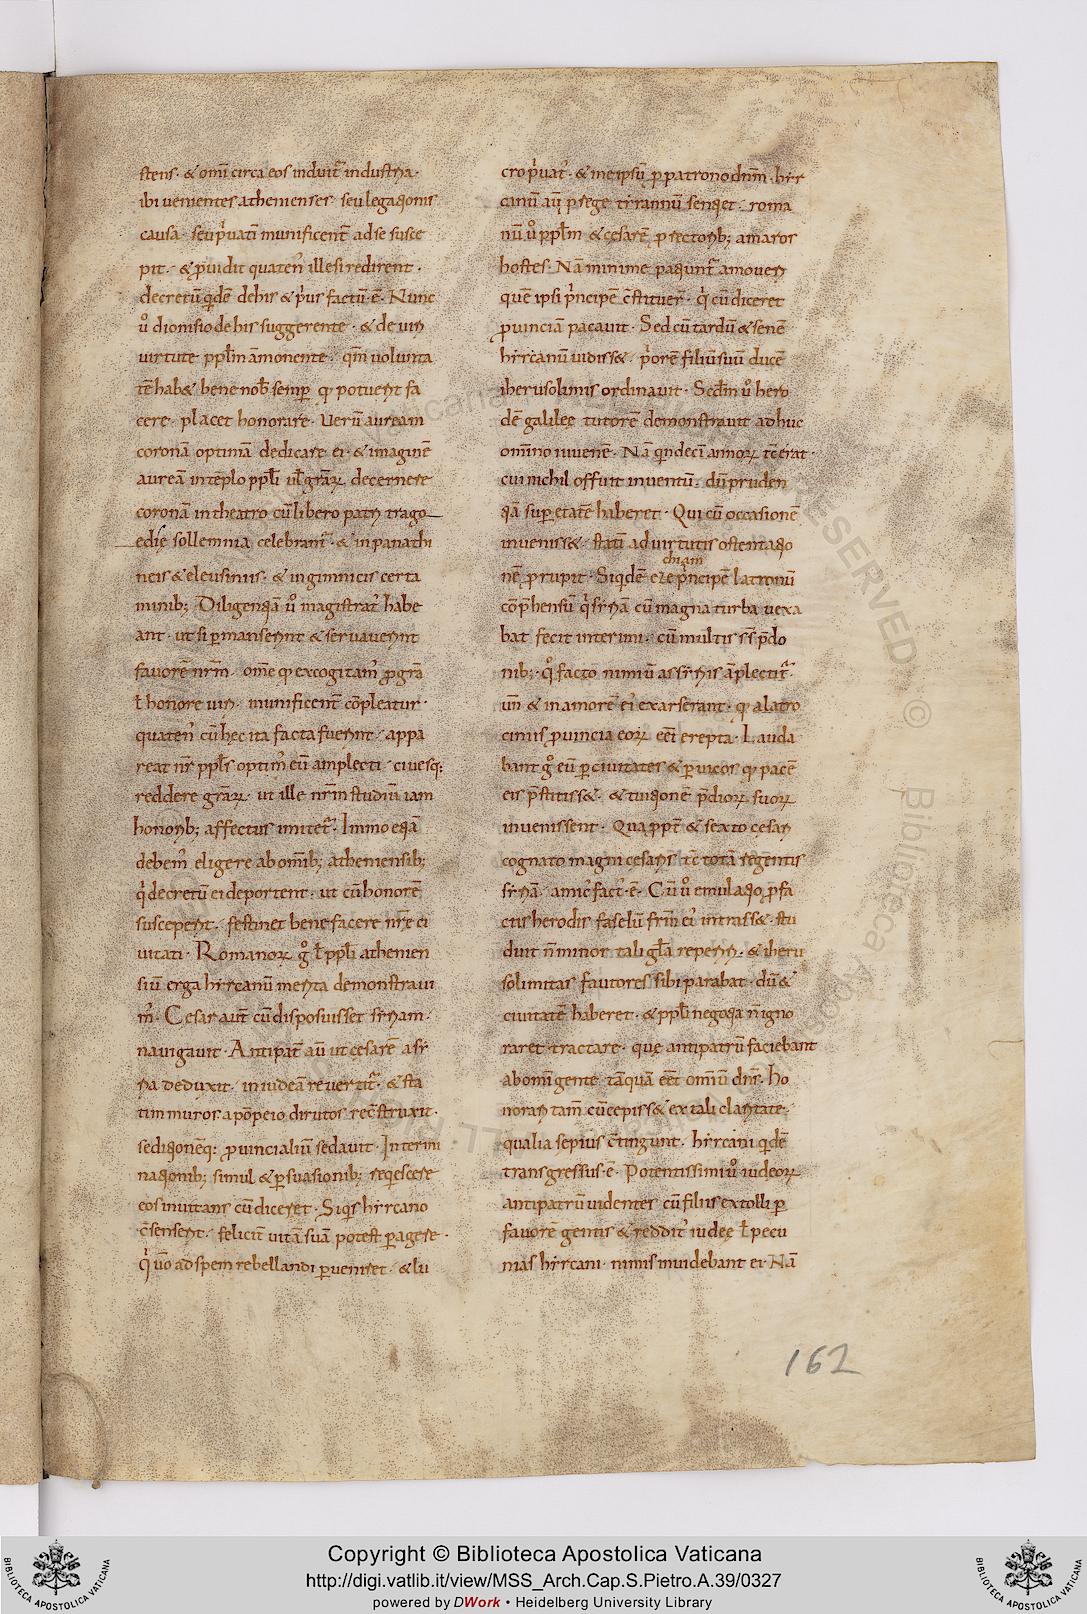 stens. & omi circa eos induit industria.
ibi venientes athenienses. seu legationis
causa. seu pͥuati munificent ad se susce
pit. & puidit quaten illesi redirent.
decretu qde de his & pͥus factu. ē. Nunc
u̾ dionisio de his suggerente. & de uiri
uirtute ppl̄m āmonente. qm̄ uolunta
tē hab& bene nob̄ semp̄ q̄ potuerit fa
cere. placet honorare. Ueru auream
coronā optimā dedicare ei. & imaginē
aureā in tēplo ppl̄i ul̄ grāꝝ decernere
coronā in theatro cu libero patri trago
edie sollemnia celebrant̄. & in panathi
neis & eleusiniis. & in gimnicis certa
minib; Diligentiā u̾ magistrat̾ habe
ant. ut si pmanserint & seruauerint
fauorē nrm̄. om̄e q̄ excogitam̾ p grā
ł honore uiri. munificent̄ cōpleatur.
quaten̾ cu hęc ita facta fuerint. appa
reat nr̄ ppl̄s optim̾ eum amplecti. ciuesq;
reddere grāꝝ. ut ille nrm̄ studiu iam
honorib; affectus imitet̄. Immo etiā
debem̾ eligere ab omib; atheniensib;
qͥ decretu ei deportent. ut cu honorē
susceperit. festinet bene facere nrē ci
uitati. Romanoꝝ g̊ ł ppl̄i athenien
siu erga hircanu merita demonstraui
m̾. Cesar aut cu disposuisset siriam.
nauigauit. Antipat̄ au ut cesare a si
ria deduxit. in iudeā reuertit̄. & sta
tim muros a pōpeio dirutos recstruxit.
seditionēq; puincialiu sedauit. Intermi
nationib; simul & psuasionib; reqescere
eos inuitans cu diceret. Siqis hircano
c̄senserit. felicit̄ uitā suā potest pagere.
qͥ uo ad spem rebellandi pueniret. & lu
cro pͥuat̾. & me ipsu p patrono dnm̄. hir
canu au p rege tirannu sentiet. roma
nu u̾ p ppl̄m & cesare p rectorib; amaros
hostes. Nā minime patiunt̄ amoueri
quē ipsi pͥncipē c̄stituer̄. qͥ cu diceret
puinciā pacauit. Sed cu tardu & senē
hircanu uidiss&. pͥorē filiu suu ducē
iherusolimis ordinauit. Secdm̄ u̾ hero
dē galilęe tutorē demonstrauit adhuc
omino iuuenē. Nā qndeci annoꝝ tc̄ erat.
cui nichil offuit inuentu. du pruden
tiā sup etatē haberet. Qui cu occasionē
inueniss&. statī ad uirtutis ostentatio
chiam
nē prupit. Siqdē eze pͥncipē latronu
cōphensu qͥ siriā cu magna turba uexa
bat fecit interimi. cu multis ss̄ pdo
nib;. q̊ facto nimiu a siriis āplectit̄.
un̄ & in amorē ei̾ exarserant. q̄ a latro
ciniis puincia eoꝝ eēt erepta. Lauda
bant g̊ eu p ciuitates & p uicos q̄ pacē
eis pstitiss&. & tuitionē pdioꝝ suoꝝ
inuenissent. Qua ppt̄ & sexto cesari
cognato magni cesaris. tc̄ totā regentis
siriā. amic̾ fact̾. ē. Cu u̾ emulatio pfa
ctis herodis faselu frm̄ ei̾ intrass&. stu
duit n̄ minor tali gl̄a reperiri. & iheru
solimitas fautores sibi parabat. du &
ciuitatē haberet. & ppl̄i negotia n̄ igno
raret tractare. que antipatru faciebant
ab omi gente. tāquā eēt omiu dn̄s. Ho
noran tam cu cepiss& ex tali claritate.
qualia sepius c̄tingunt. hircani qdē
transgressus. ē. Potentissimi u̾ iudeoꝝ
antipatru uidentes cu filiis extolli p
fauorē gentis & reddit̾ iudeę ł pecu
nias hircani. nimis inuidebant ei. Nā
162
Copyright © Biblioteca Apostolica Vaticana
http://digi.vatlib.it/view/MSS_Arch.Cap.S.Pietro.A.39/0327
powered by DWork • Heidelberg University Library